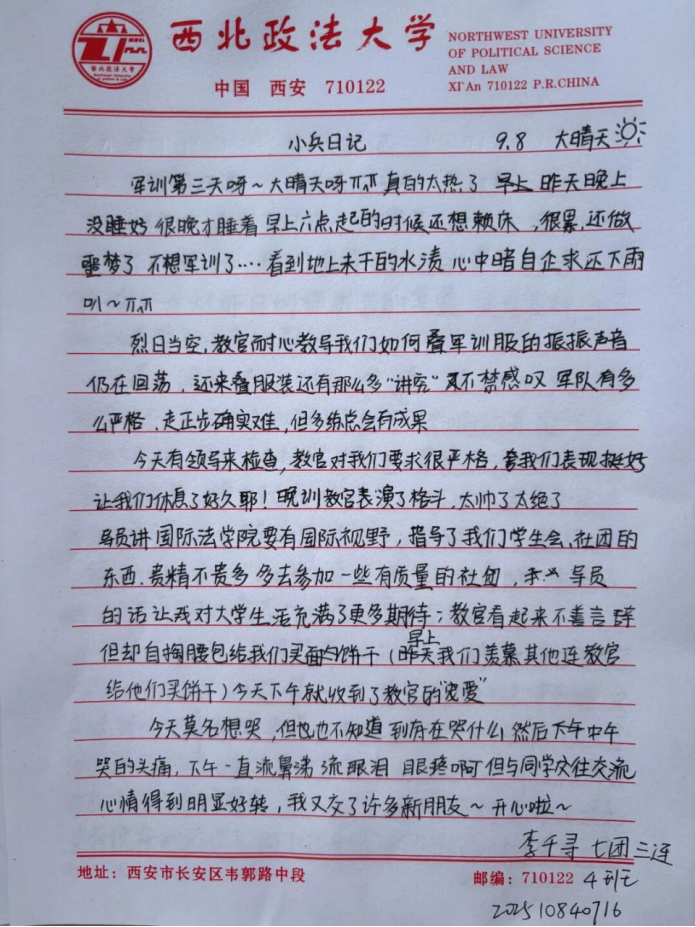 西北政法大学
NORTHWEST UNIVERSITY
OF POLITICAL SCIENCE
AND LAW
XI'An 710122 P.R.CHINA
中国 西安 710122
西北政法大学
小兵日记 9.8 大晴天
军训第三天呀~大晴天呀 真的太热了 早上 昨天晚上
没睡好 很晚才睡着 早上六点起的时候还想赖床，很累，还做
噩梦了 不想军训了····看到地上未干的水渍 心中暗自企求还下雨
叭~
烈日当空，教官耐心教导我们如何叠军训服的振振声音
仍在回荡，还来叠服装还有那么多"讲究" 不禁感叹 军队有多
么严格，走正步确实难，但多练总会有成果
今天有领导来检查，教官对我们要求很严格，我们表现挺好
让我们休息了好久耶！晚训教官表演了格斗，太帅了太绝了
导员讲国际法学院要有国际视野，指导了我们学生会、社团的
东西，贵精不贵多 多去参加一些有质量的社团，导员
的话让我对大学生活充满了更多期待；教官看起来不善言辞
但却自掏腰包给我们买饼干（昨天早上我们羡慕其他连教官
给他们买饼干）今天下午就收到了教官的"宠爱"
今天莫名想哭，但也不知道到底在哭什么，然后下午中午
哭的头痛，下午一直流鼻涕 流眼泪 眼疼啊 但与同学交往交流
心情得到明显好转，我又交了许多新朋友~开心啦~
李千寻 七团三连
地址：西安市长安区韦郭路中段 邮编：710122 4班
202510840716